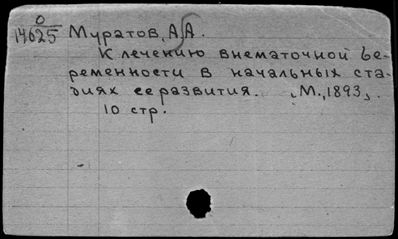 О
14625
Муратов, А.А.
К лечению внематочной бе-
ременности в начальных ста-
диях ее развития. М., 1893,.
10 стр.